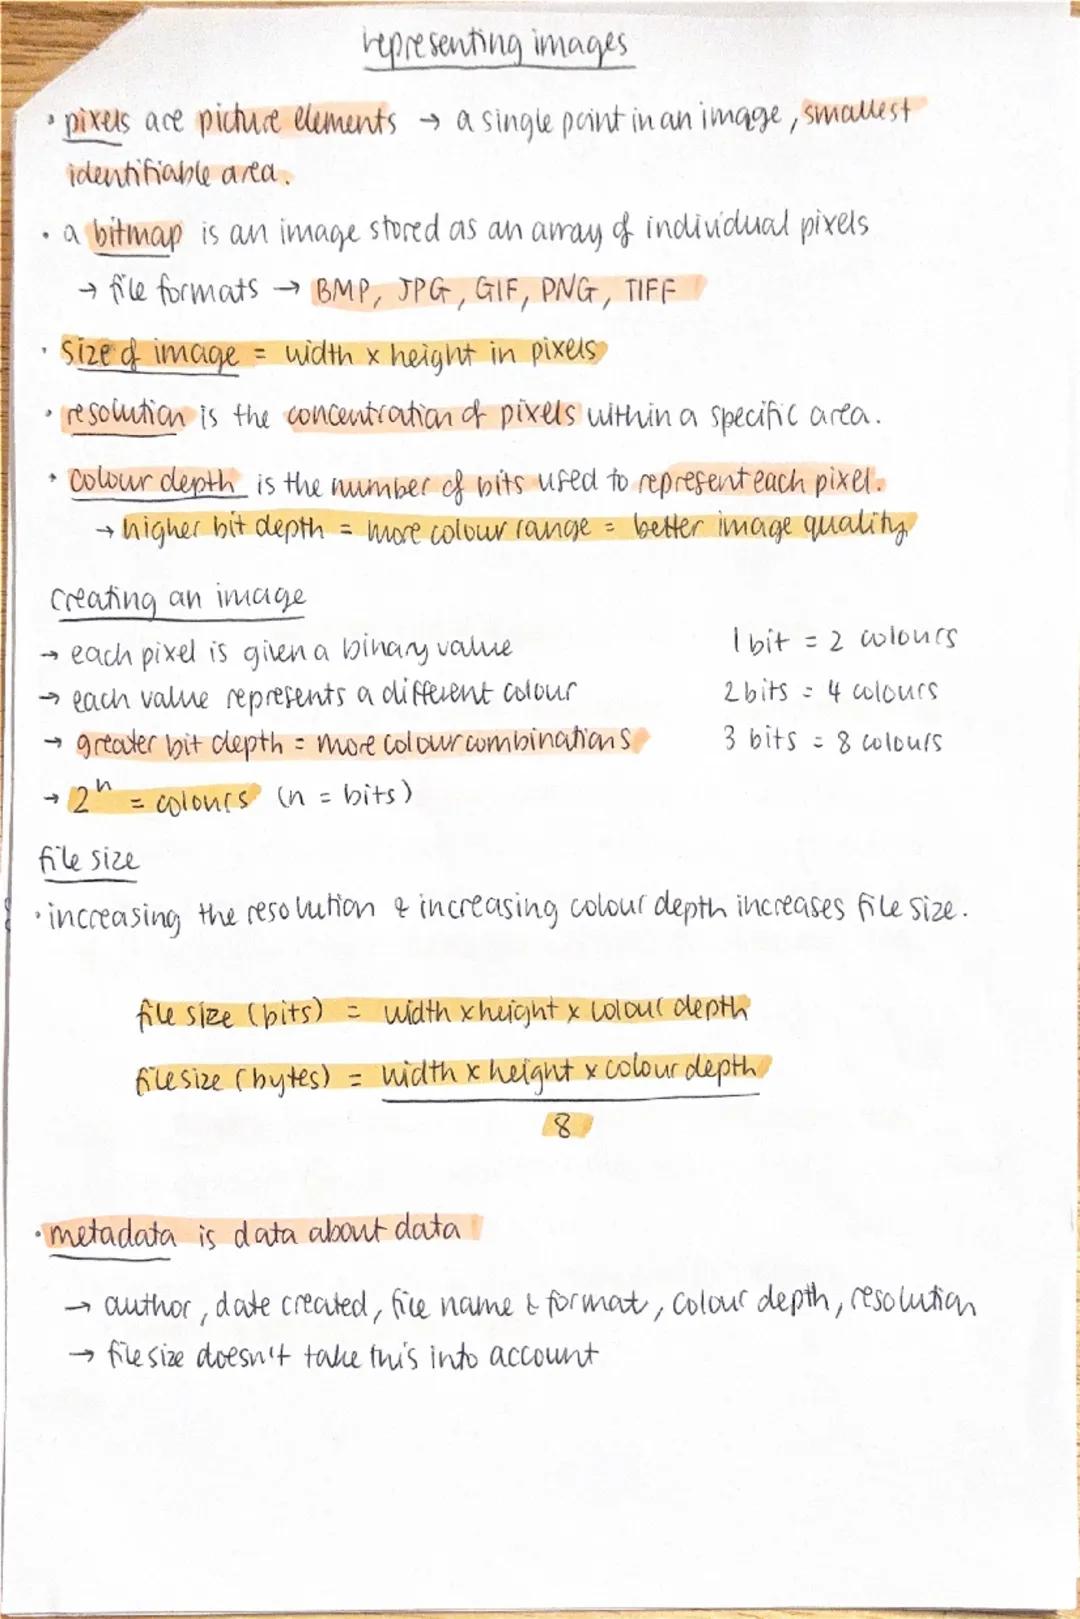 representing images
• pixels are picture elements → a single point in an image, smallest
identifiable area.
• a bitmap is an image stored as an array of individual pixels
→ file formats → BMP, JPG, GIF, PNG, TIFF
• size of image = width x height in pixels
• resolution is the concentration of pixels within a specific area.
• colour depth is the number of bits used to represent each pixel.
→ higher bit depth = more colour range = better image quality
creating an image
→ each pixel is given a binary value
→ each value represents a different colour
→ greater bit depth = more colour combinations
→ 2ⁿ = colours (n = bits)
1 bit = 2 colours
2 bits = 4 colours
3 bits = 8 colours
file size
• increasing the resolution & increasing colour depth increases file size.
file size (bits) = width x height x colour depth
file size (bytes) = width x height x colour depth
8
• metadata is data about data
→ author, date created, file name & format, colour depth, resolution
→ file size doesn't take this into account